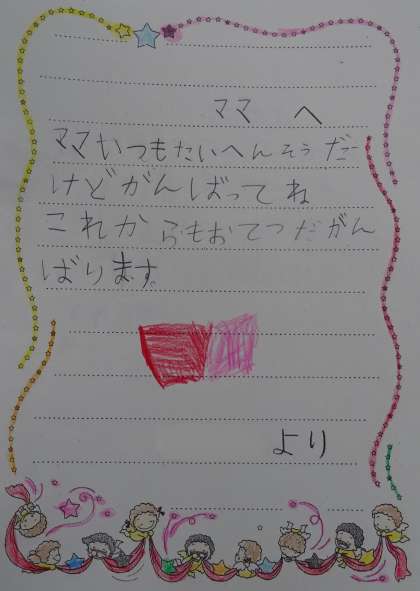 ママ へ
ママいつもたいへんそうだ
けどがんばってね
これからもおてつだがん
ばります。
より